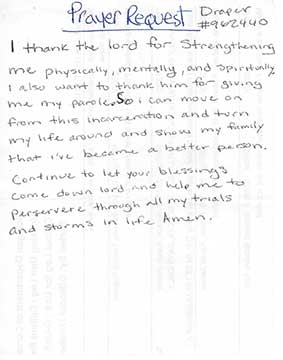 Prayer Request Draper
#962440
I thank the lord for Strengthening
me physically, mentally, and Spiritually.
I also want to thank him for giving
me my parole. So i can move on
from this incarceration and turn
my life around and show my family
that i've became a better person.
Continue to let your blessings
come down lord and help me to
perservere through all my trials
and storms in life Amen.